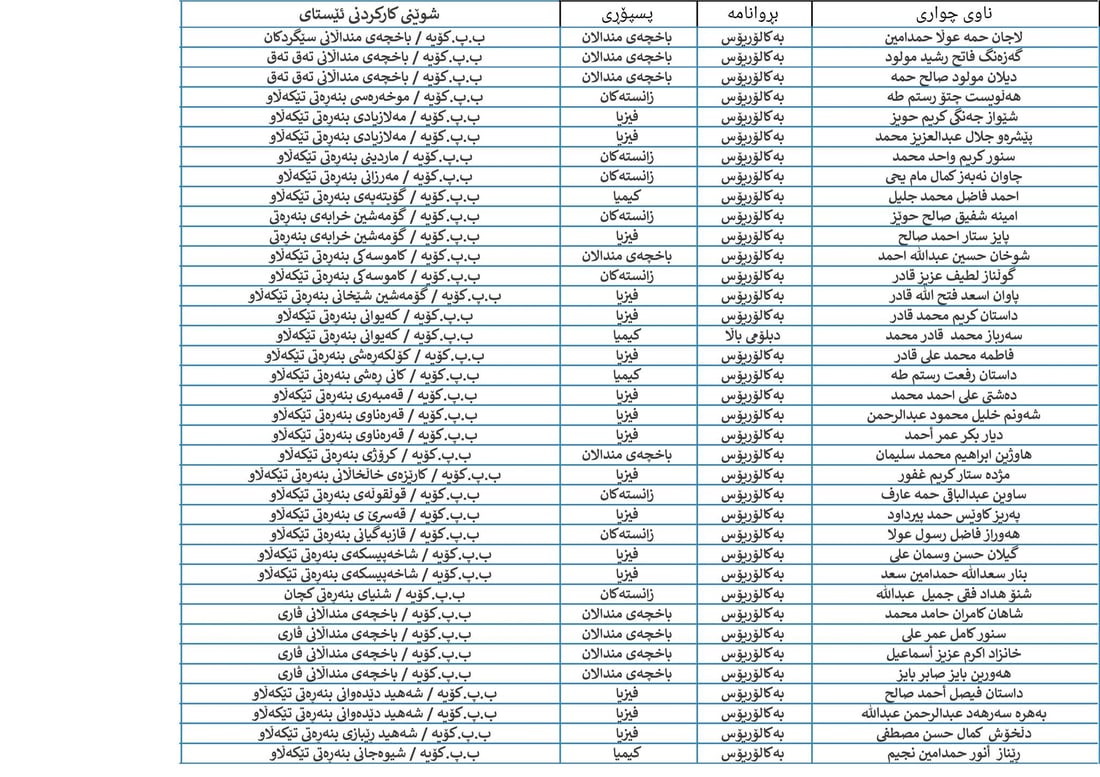 ناوی چواری	بڕوانامە	پسپۆڕی	شوێنی کارکردنی ئێستای
لاجان حمە عولا حمدامین	بەکالۆریۆس	باخچەی منداڵان	ب.پ.کۆیە / باخچەی منداڵانی سێگردکان
گەزەنگ فاتح رشید مولود	بەکالۆریۆس	باخچەی منداڵان	ب.پ.کۆیە / باخچەی منداڵانی تەق تەق
دیلان مولود صالح حمە	بەکالۆریۆس	باخچەی منداڵان	ب.پ.کۆیە / باخچەی منداڵانی تەق تەق
هەڵویست چتۆ رستم طە	بەکالۆریۆس	زانستەکان	ب.پ.کۆیە / موخەرەسی بنەڕەتی تێکەڵاو
شێواز جەنگی کریم حویز	بەکالۆریۆس	فیزیا	ب.پ.کۆیە / مەلازیادی بنەڕەتی تێکەڵاو
پێشرەو جلال عبدالعزیز محمد	بەکالۆریۆس	فیزیا	ب.پ.کۆیە / مەلازیادی بنەڕەتی تێکەڵاو
سنور کریم واحد محمد	بەکالۆریۆس	زانستەکان	ب.پ.کۆیە / ماردینی بنەڕەتی تێکەڵاو
چاوان نەبەز کمال مام یحی	بەکالۆریۆس	زانستەکان	ب.پ.کۆیە / مەرزانی بنەڕەتی تێکەڵاو
احمد فاضل محمد جلیل	بەکالۆریۆس	کیمیا	ب.پ.کۆیە / گۆپتەپەی بنەڕەتی تێکەڵاو
امینە شفیق صالح حوێز	بەکالۆریۆس	زانستەکان	ب.پ.کۆیە / گۆمەشین خرابەی بنەڕەتی
پایز ستار احمد صالح	بەکالۆریۆس	فیزیا	ب.پ.کۆیە / گۆمەشین خرابەی بنەڕەتی
شوخان حسین عبداللە احمد	بەکالۆریۆس	باخچەی منداڵان	ب.پ.کۆیە / کاموسەکی بنەڕەتی تێکەڵاو
گوڵناز لطیف عزیز قادر	بەکالۆریۆس	زانستەکان	ب.پ.کۆیە / کاموسەکی بنەڕەتی تێکەڵاو
پاوان اسعد فتح اللە قادر	بەکالۆریۆس	فیزیا	ب.پ.کۆیە / گۆمەشین شێخانی بنەڕەتی تێکەڵاو
داستان کریم محمد قادر	بەکالۆریۆس	فیزیا	ب.پ.کۆیە / کەیوانی بنەڕەتی تێکەڵاو
سەرباز محمد قادر محمد	دبلۆمی باڵا	کیمیا	ب.پ.کۆیە / کەیوانی بنەڕەتی تێکەڵاو
فاطمە محمد علی قادر	بەکالۆریۆس	فیزیا	ب.پ.کۆیە / کۆلکەرەشی بنەڕەتی تێکەڵاو
داستان رفعت رستم طە	بەکالۆریۆس	کیمیا	ب.پ.کۆیە / کانی ڕەشی بنەڕەتی تێکەڵاو
دەشتی علی احمد محمد	بەکالۆریۆس	فیزیا	ب.پ.کۆیە / قەمبەری بنەڕەتی تێکەڵاو
شەونم خلیل محمود عبدالرحمن	بەکالۆریۆس	فیزیا	ب.پ.کۆیە / قەرەناوی بنەڕەتی تێکەڵاو
دیار بکر عمر أحمد	بەکالۆریۆس	فیزیا	ب.پ.کۆیە / قەرەناوی بنەڕەتی تێکەڵاو
هاوژین ابراهیم محمد سلیمان	بەکالۆریۆس	باخچەی منداڵان	ب.پ.کۆیە / کرۆژی بنەڕەتی تێکەڵاو
مژدە ستار کریم غفور	بەکالۆریۆس	فیزیا	ب.پ.کۆیە / کارێزەی خاڵخاڵانی بنەڕەتی تێکەڵاو
ساوین عبدالباقی حمە عارف	بەکالۆریۆس	زانستەکان	ب.پ.کۆیە / قوڵقوڵەی بنەڕەتی تێکەڵاو
پەریز کاوێس حمد پیرداود	بەکالۆریۆس	فیزیا	ب.پ.کۆیە / قەسرێ ی بنەڕەتی تێکەڵاو
هەوراز فاضل رسول عولا	بەکالۆریۆس	زانستەکان	ب.پ.کۆیە / قازبەگیانی بنەڕەتی تێکەڵاو
گیلان حسن وسمان علی	بەکالۆریۆس	فیزیا	ب.پ.کۆیە / شاخەپیسکەی بنەڕەتی تێکەڵاو
بنار سعداللە حمدامین سعد	بەکالۆریۆس	فیزیا	ب.پ.کۆیە / شاخەپیسکەی بنەڕەتی تێکەڵاو
شنۆ هداد فقی جمیل عبداللە	بەکالۆریۆس	زانستەکان	ب.پ.کۆیە / شنیای بنەڕەتی کچان
شاهان کامران حامد محمد	بەکالۆریۆس	باخچەی منداڵان	ب.پ.کۆیە / باخچەی منداڵانی ڤاری
سنور کامل عمر علی	بەکالۆریۆس	باخچەی منداڵان	ب.پ.کۆیە / باخچەی منداڵانی ڤاری
خانزاد اکرم عزیز أسماعیل	بەکالۆریۆس	باخچەی منداڵان	ب.پ.کۆیە / باخچەی منداڵانی ڤاری
هەورین بایز صابر بایز	بەکالۆریۆس	باخچەی منداڵان	ب.پ.کۆیە / باخچەی منداڵانی ڤاری
داستان فیصل أحمد صالح	بەکالۆریۆس	فیزیا	ب.پ.کۆیە / شەهید دێدەوانی بنەڕەتی تێکەڵاو
بەهرە سەرهەد عبدالرحمن عبداللە	بەکالۆریۆس	فیزیا	ب.پ.کۆیە / شەهید دێدەوانی بنەڕەتی تێکەڵاو
دڵخۆش کمال حسن مصطفی	بەکالۆریۆس	فیزیا	ب.پ.کۆیە / شەهید رێبازی بنەڕەتی تێکەڵاو
رێناز أنور حمدامین نجیم	بەکالۆریۆس	کیمیا	ب.پ.کۆیە / شیوەجانی بنەڕەتی تێکەڵاو